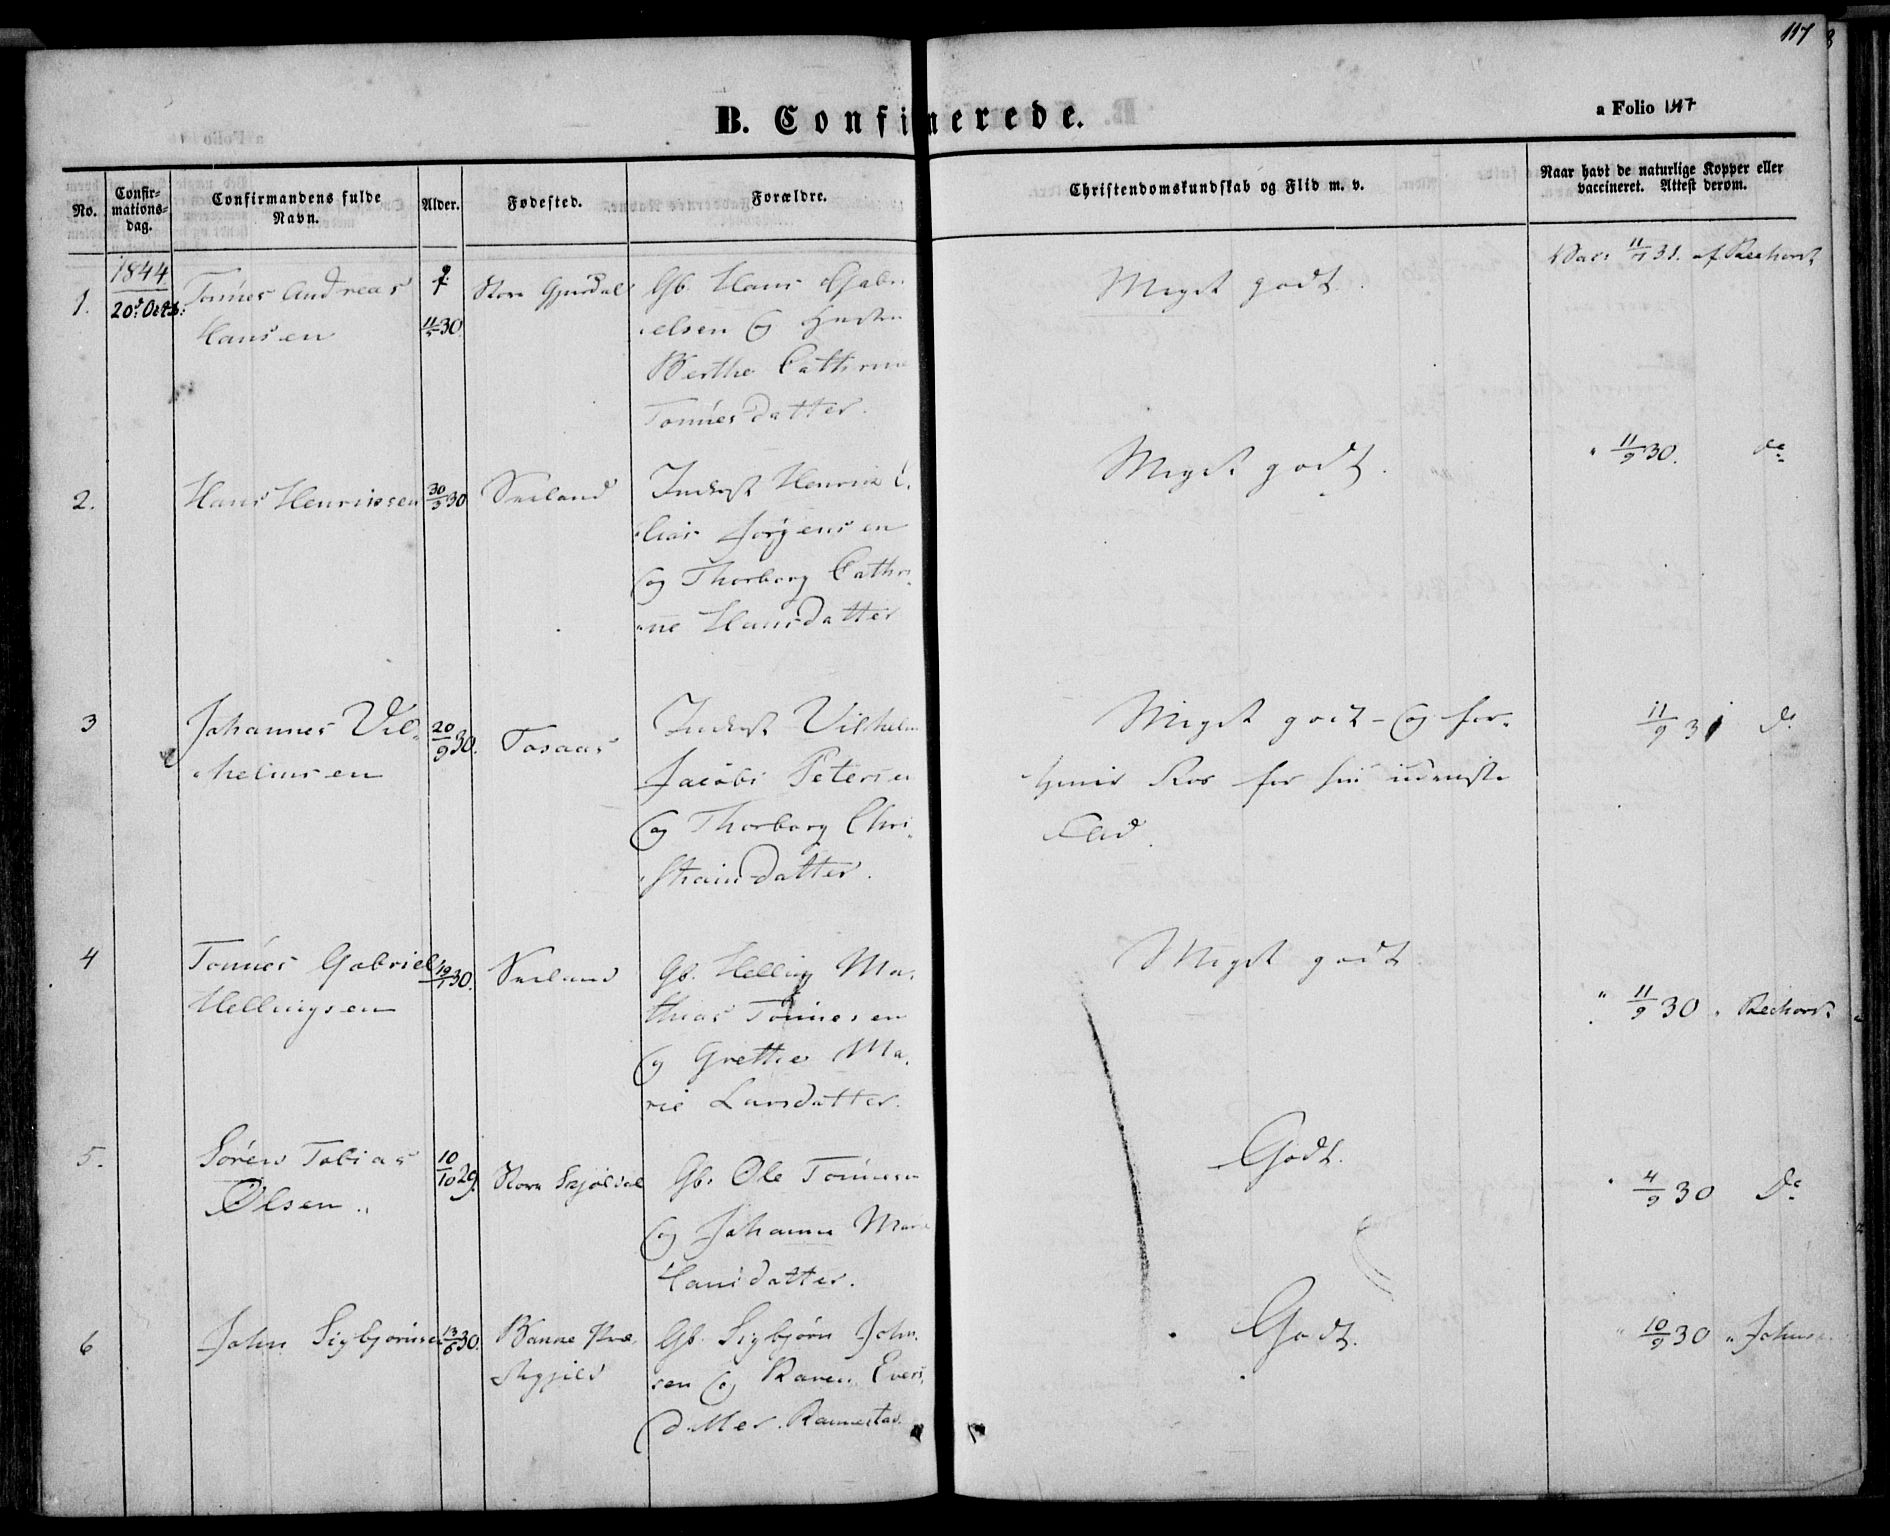 117
B. Confirmerede.
a Folio 147
No.
Confir-
mations-
dag.
Confirmandens fulde
Navn.
Alder.
Fødested.
Forældre.
Christendomskundskab og Flid m. v.
Naar havt de naturlige Kopper eller
vaccineret. Attest derom.
1844
1.
20d Octb:
Tønnes Andreas
Hansen
11/5 30
Store Gjersdal
Gb. Hans Gabri
elsen og Hustru
Berthe Cathrine
Tønnesdatter.
Meget godt.
Vac: 11/9 31. af Rechorst
2.
Hans Henriksen
30/3 30
Sveland
Inderst Henrik E
lias Jørgensen
og Thorborg Cathri
ne Hansdatter
Meget godt.
" 11/9 30. do
3
Johannes Vil
helmsen
20/9 30.
Tosaas
Inderst Vilhelm
Jacobi Petersen
og Thorborg Chri
stiansdatter.
Meget godt - og for-
tjener Roes for sin udviste
Flid.
11/9 31 do
4
Tønnes Gabriel
Hellingsen
19/1 30.
Sveland
Gb. Helling Ma
thias Tønnesen
og Grethe Ma
rie Larsdatter.
Meget godt
" 11/9 30 " Rechorst
5.
Søren Tobias
Olsen "
10/10 29.
Store Skjøldal
Gb. Ole Tønnesen
og Johanne Marie
Hansdatter.
Godt.
" 4/9 30 Do
6
John Sigbjørnsen
13/6 30.
Banne Præ
stegjeld
Gb. Sigbjørn John
sen og Karen Evers
datter. Rannestad
Godt.
" 10/9 30 " Johnsen